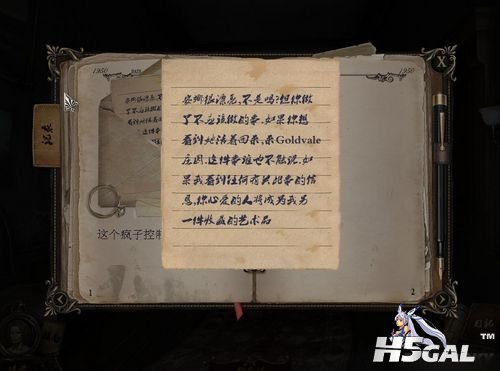 1950
1950
记录
安娜很漂亮,不是吗?但你做
了不应该做的事.如果你想
看到她活着回来,来Goldvale
庄园.这件事谁也不能说.如
果我看到任何有关此事的信
息,你心爱的人将成为我另
一件收藏的艺术品
这个疯子控制
1
2
X
H5GAL
TM